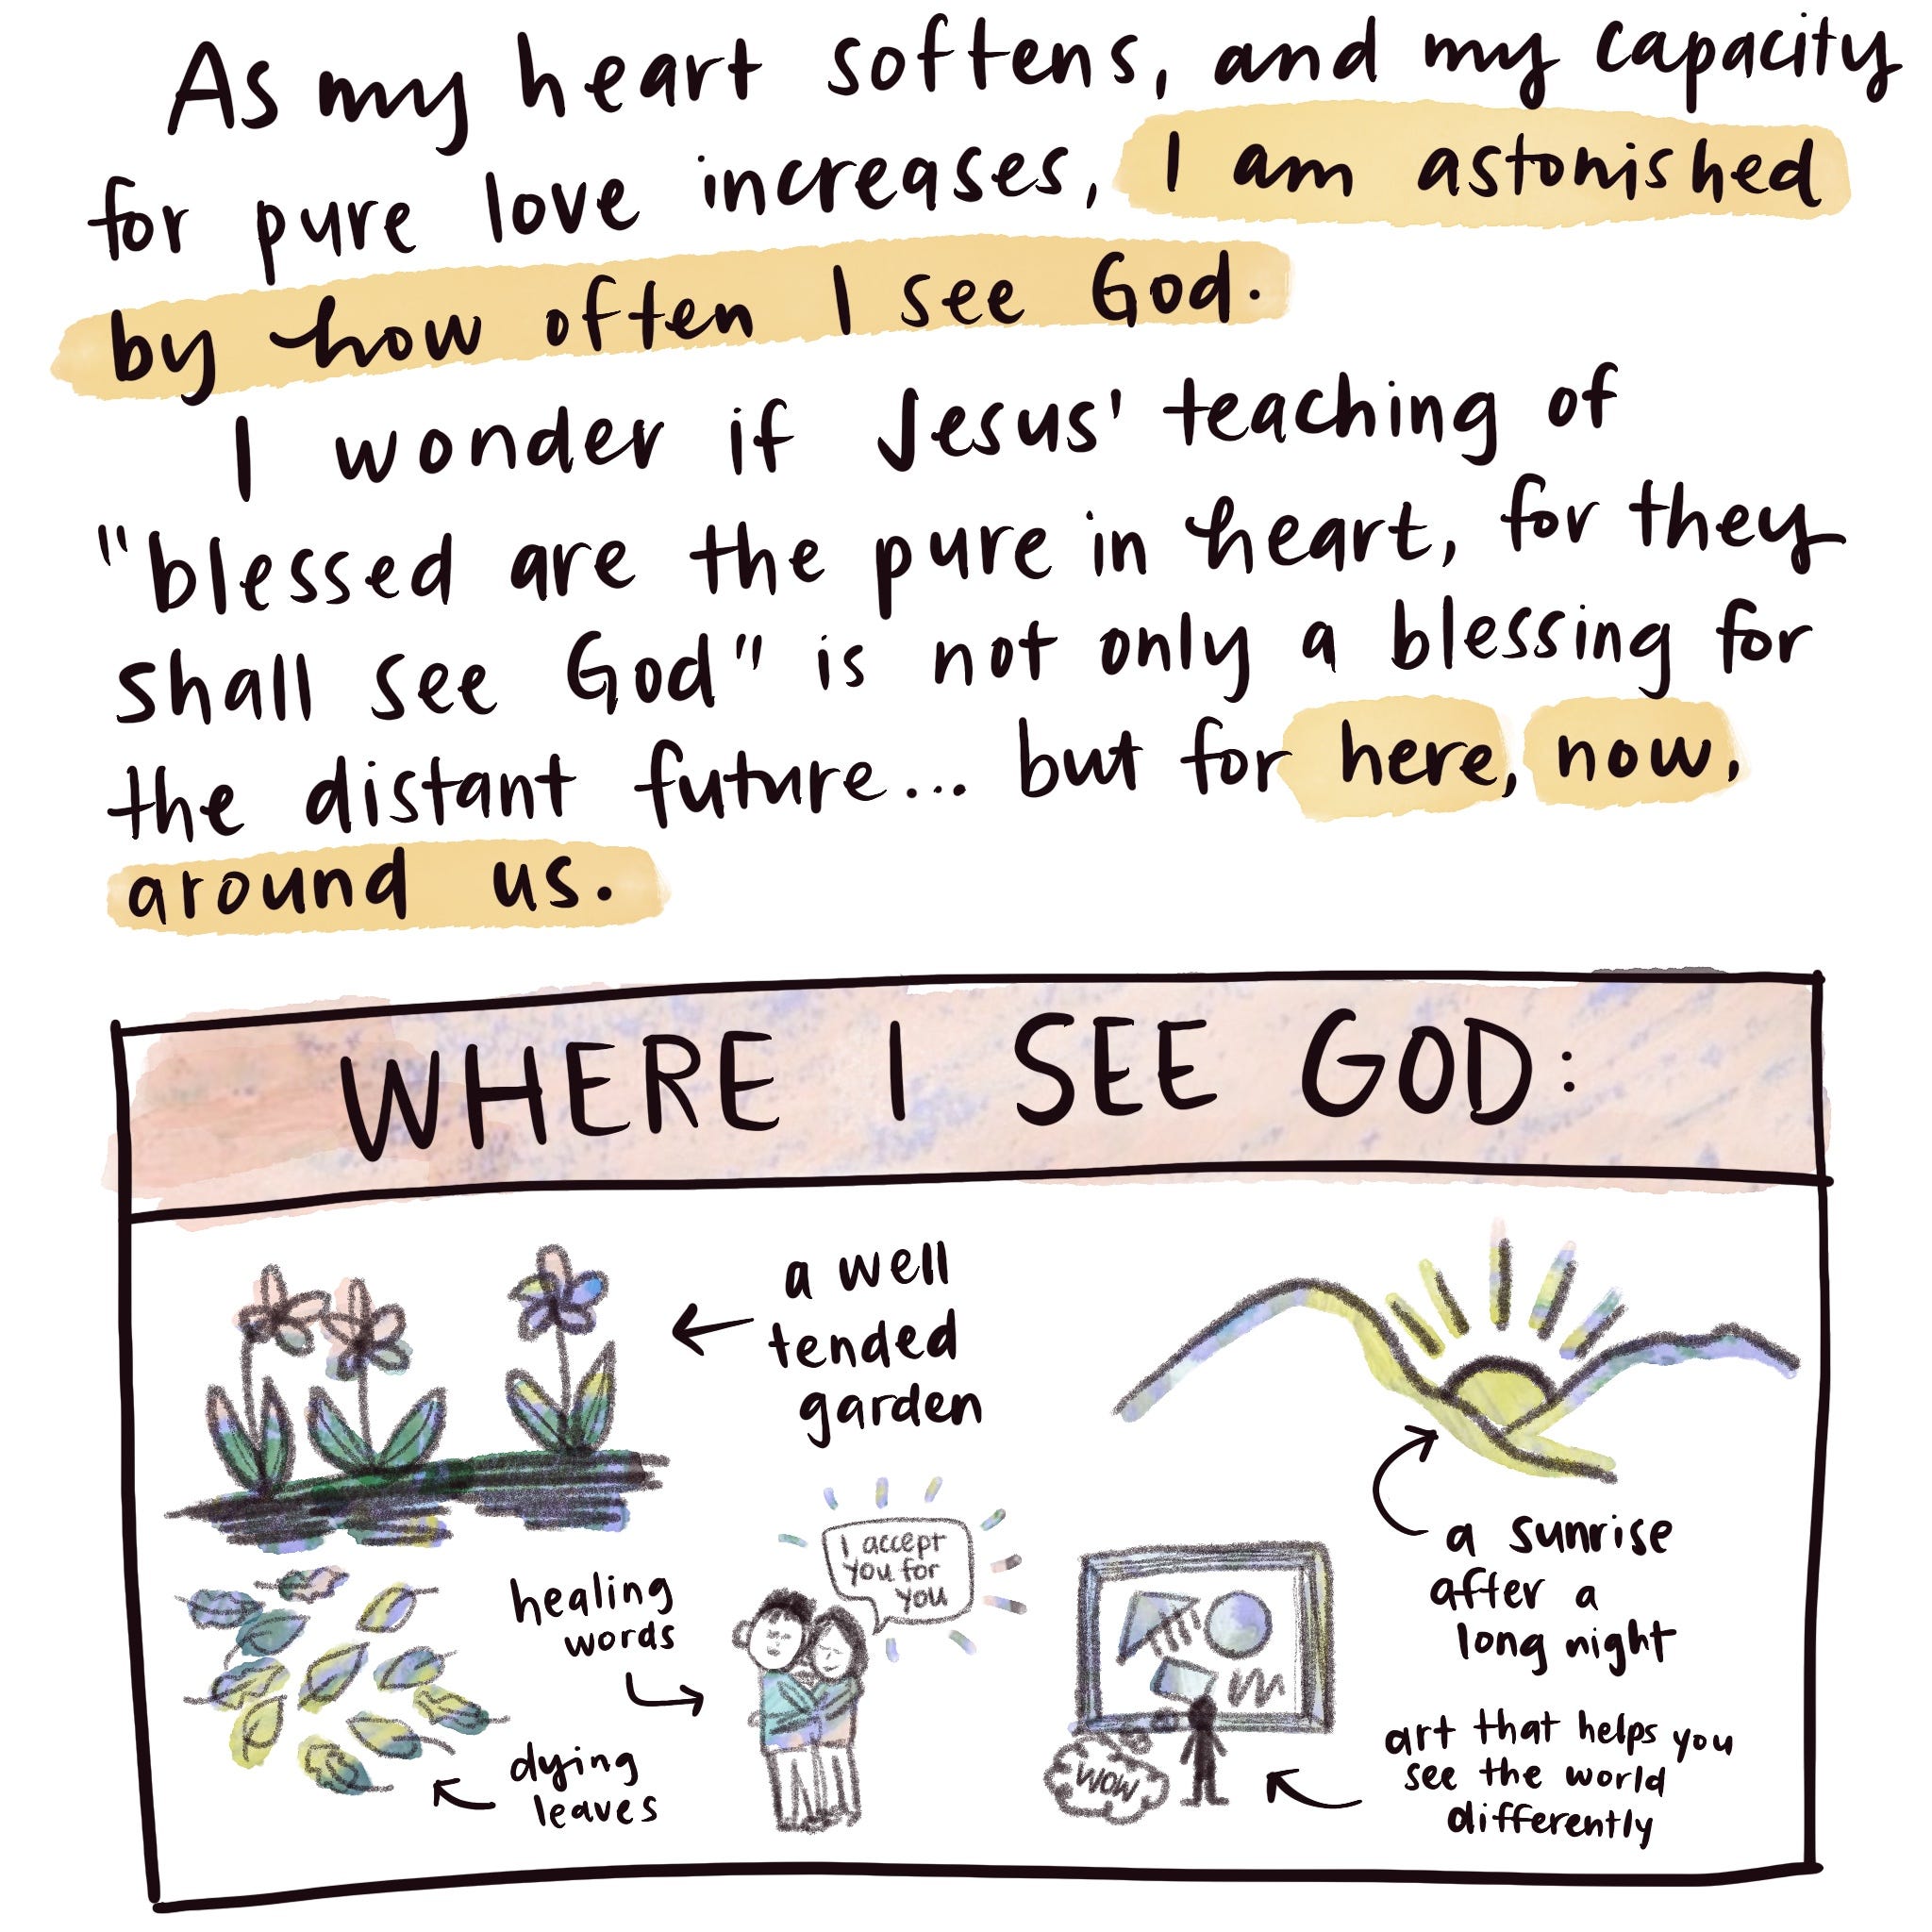 As my heart softens, and my capacity
for pure love increases, I am astonished
by how often I see God.
I wonder if Jesus' teaching of
"blessed are the pure in heart, for they
shall see God" is not only a blessing for
the distant future... but for here, now,
around us.
WHERE I SEE GOD:
a well
tended
garden
a sunrise
after a
long night
healing
words
I accept
you for
you
dying
leaves
WOW
art that helps you
see the world
differently